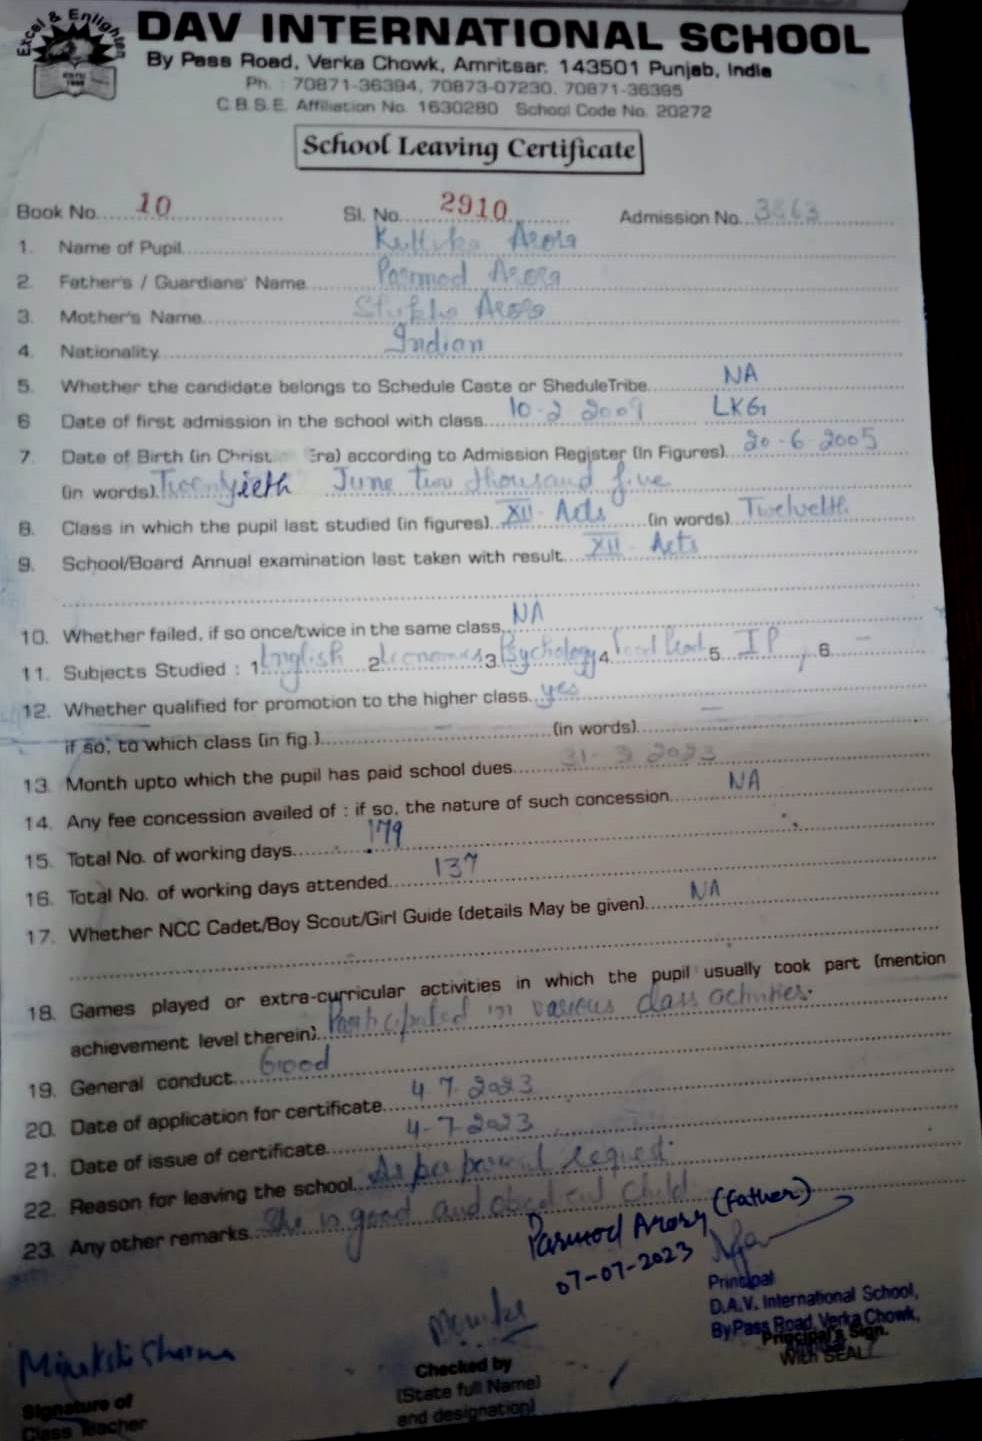 Excel & Enlighten
DAV INTERNATIONAL SCHOOL
By Pass Road, Verka Chowk, Amritsar. 143501 Punjab, India
Ph. : 70871-36394, 70873-07230, 70871-36395
C.B.S.E. Affiliation No. 1630280 School Code No. 20272
School Leaving Certificate
Book No. 10 Sl. No. 2910 Admission No.
1. Name of Pupil Arora
2. Father's / Guardians' Name Parmod Arora
3. Mother's Name Arora
4. Nationality Indian
5. Whether the candidate belongs to Schedule Caste or SheduleTribe NA
6 Date of first admission in the school with class 10-2 2009 LKG
7. Date of Birth (in Christ Era) according to Admission Register (In Figures) 20-6 2005
(in words) Twentyieth June two thousand five
8. Class in which the pupil last studied (in figures) XII - Arts (in words) Twelveth
9. School/Board Annual examination last taken with result XII - Arts
10. Whether failed, if so once/twice in the same class NA
11. Subjects Studied : 1 English 2 Economics 3 Psychology 4 5 IP, 6 –
12. Whether qualified for promotion to the higher class yes
if so, to which class (in fig.) (in words) –
13. Month upto which the pupil has paid school dues 31-3 2023
14. Any fee concession availed of : if so, the nature of such concession NA
15. Total No. of working days 179
16. Total No. of working days attended 137
17. Whether NCC Cadet/Boy Scout/Girl Guide (details May be given) NA
18. Games played or extra-curricular activities in which the pupil usually took part (mention
achievement level therein) Participated in various class activities.
19. General conduct Good
20. Date of application for certificate 4 7 2023
21. Date of issue of certificate 4-7-2023
22. Reason for leaving the school As per parent request.
23. Any other remarks She is good and obedient child
Parmod Arora (Father)
07-07-2023
Principal
D.A.V. International School,
By Pass Road, Verka Chowk,
Principal's Sign.
With SEAL
Minakshi Sharma
Signature of
Class Teacher
Checked by
(State full Name)
and designation)